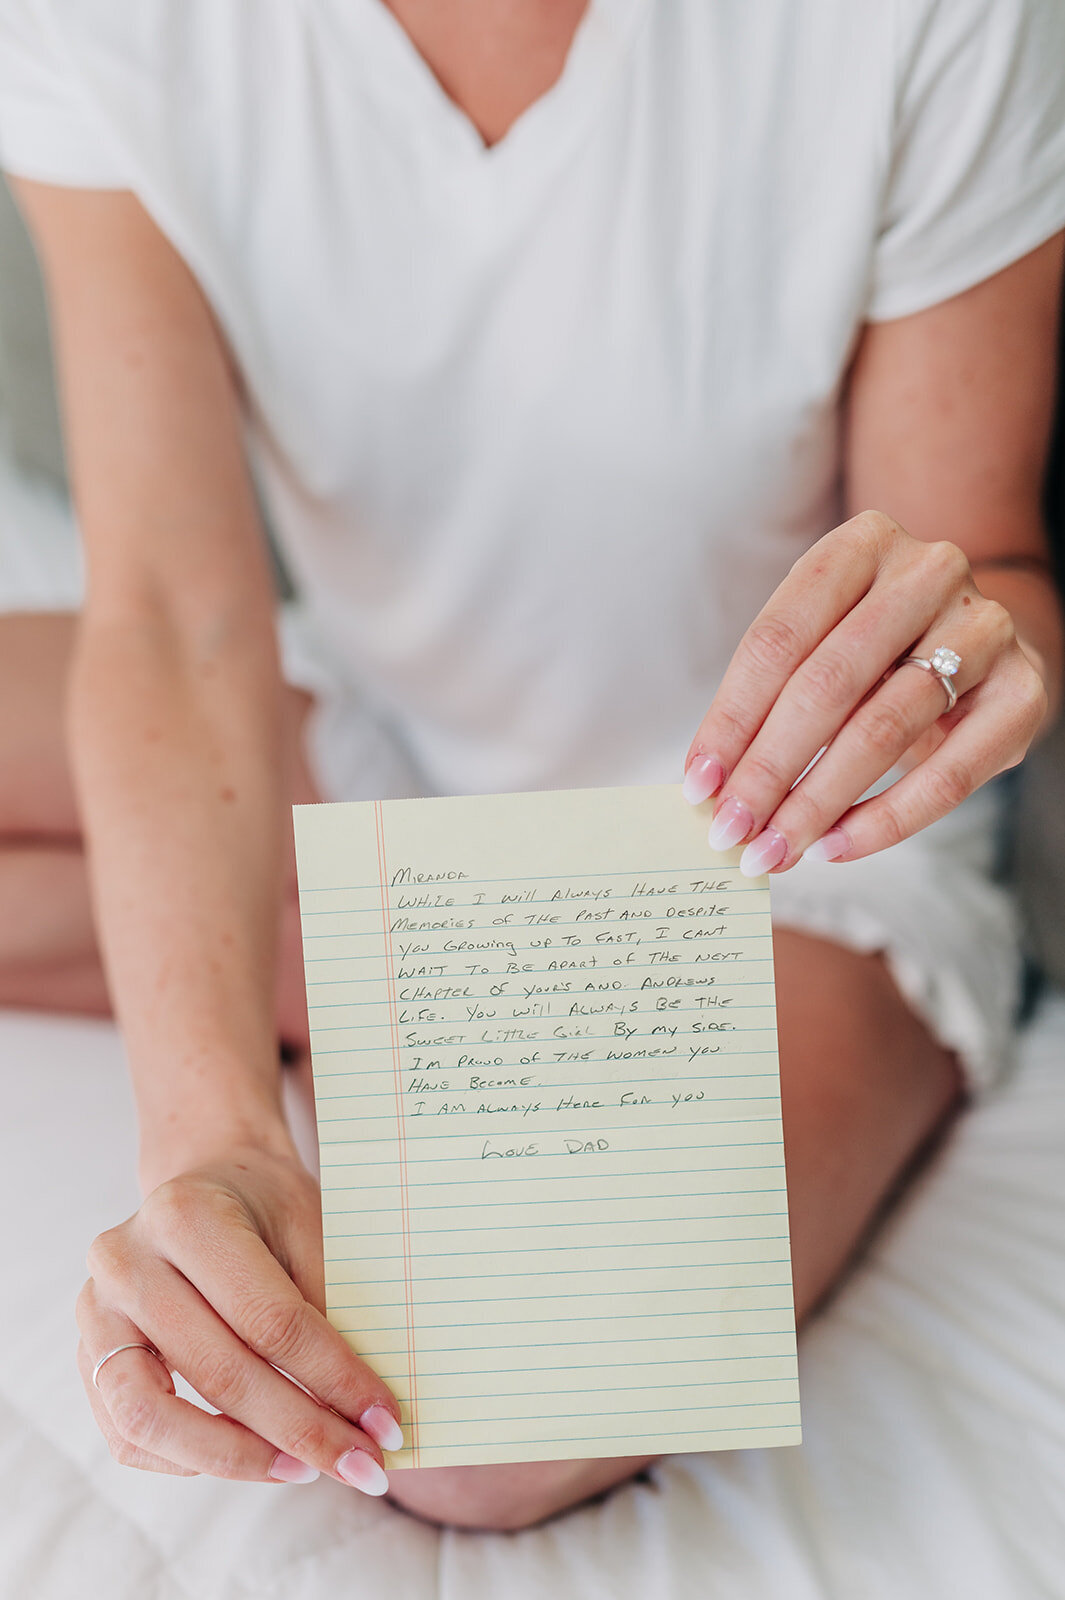 Miranda
While I will always have the
memories of the past and despite
you growing up to fast, I cant
wait to be apart of the next
chapter of yours and Andrews
life. You will always be the
sweet little girl by my side.
Im proud of the women you
have become.
I am always here for you
Love Dad